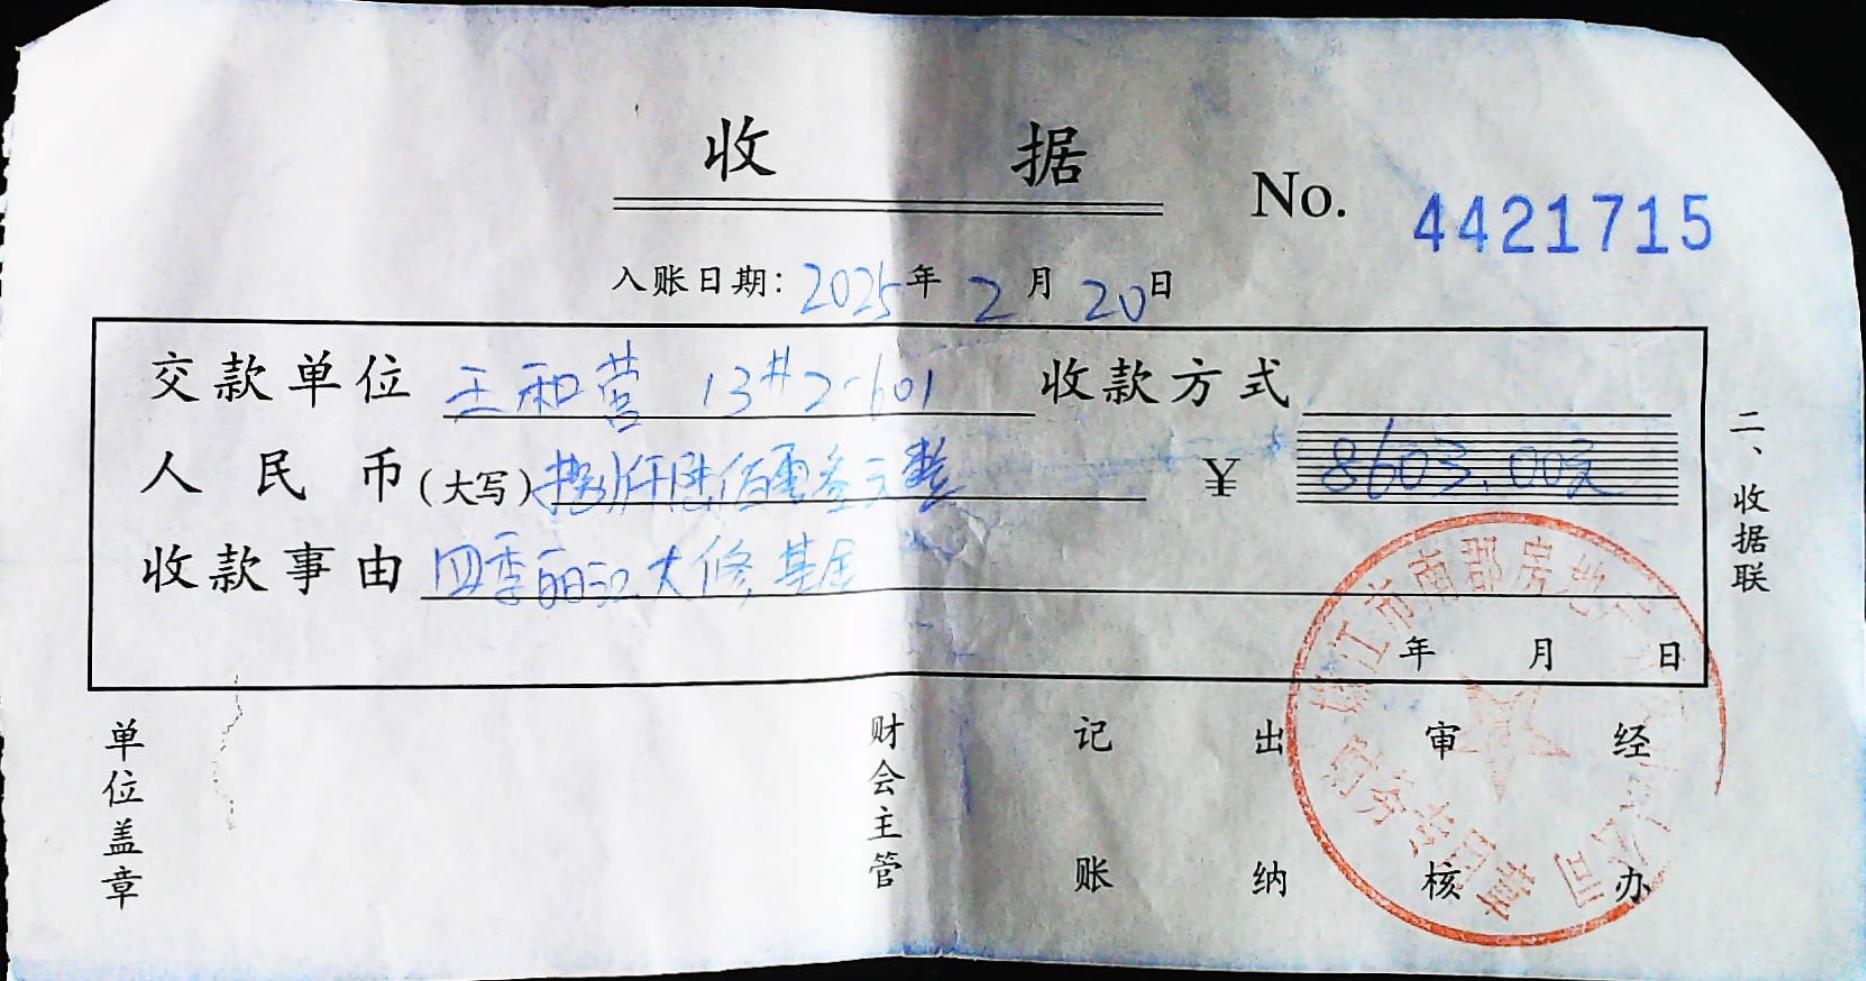 收 据
No. 4421715
入账日期：2025年 2月 20日
交款单位 王和营 13#2-601 收款方式
人民币(大写) 捌仟陆佰零叁元整 ¥ 8603.00元
收款事由 四季丽江大修基金
年 月 日
二、收据联
单位盖章 财会主管 记账 出纳 审核 经办
江市南郡房地
公司
财务专用章